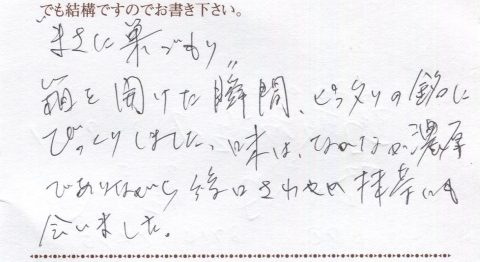 でも結構ですのでお書き下さい。
"まさに巣ごもり"
箱を開けた瞬間、ピッタリの銘に
びっくりしました、味は、なかなか濃厚
でありながら後口さわやか 抹茶にも
合いました。